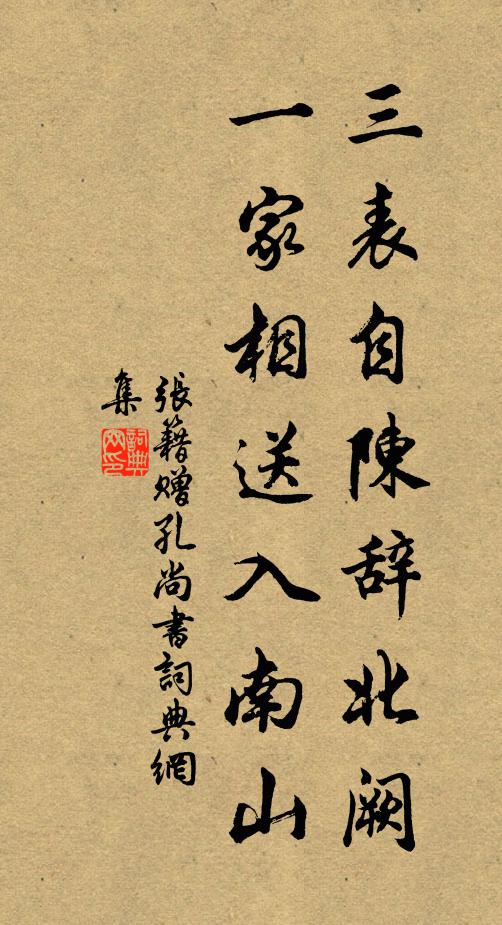 三表自陳辞北阙
一家相送入南山
張籍赠孔尚書詞典網
集
詞典
网印